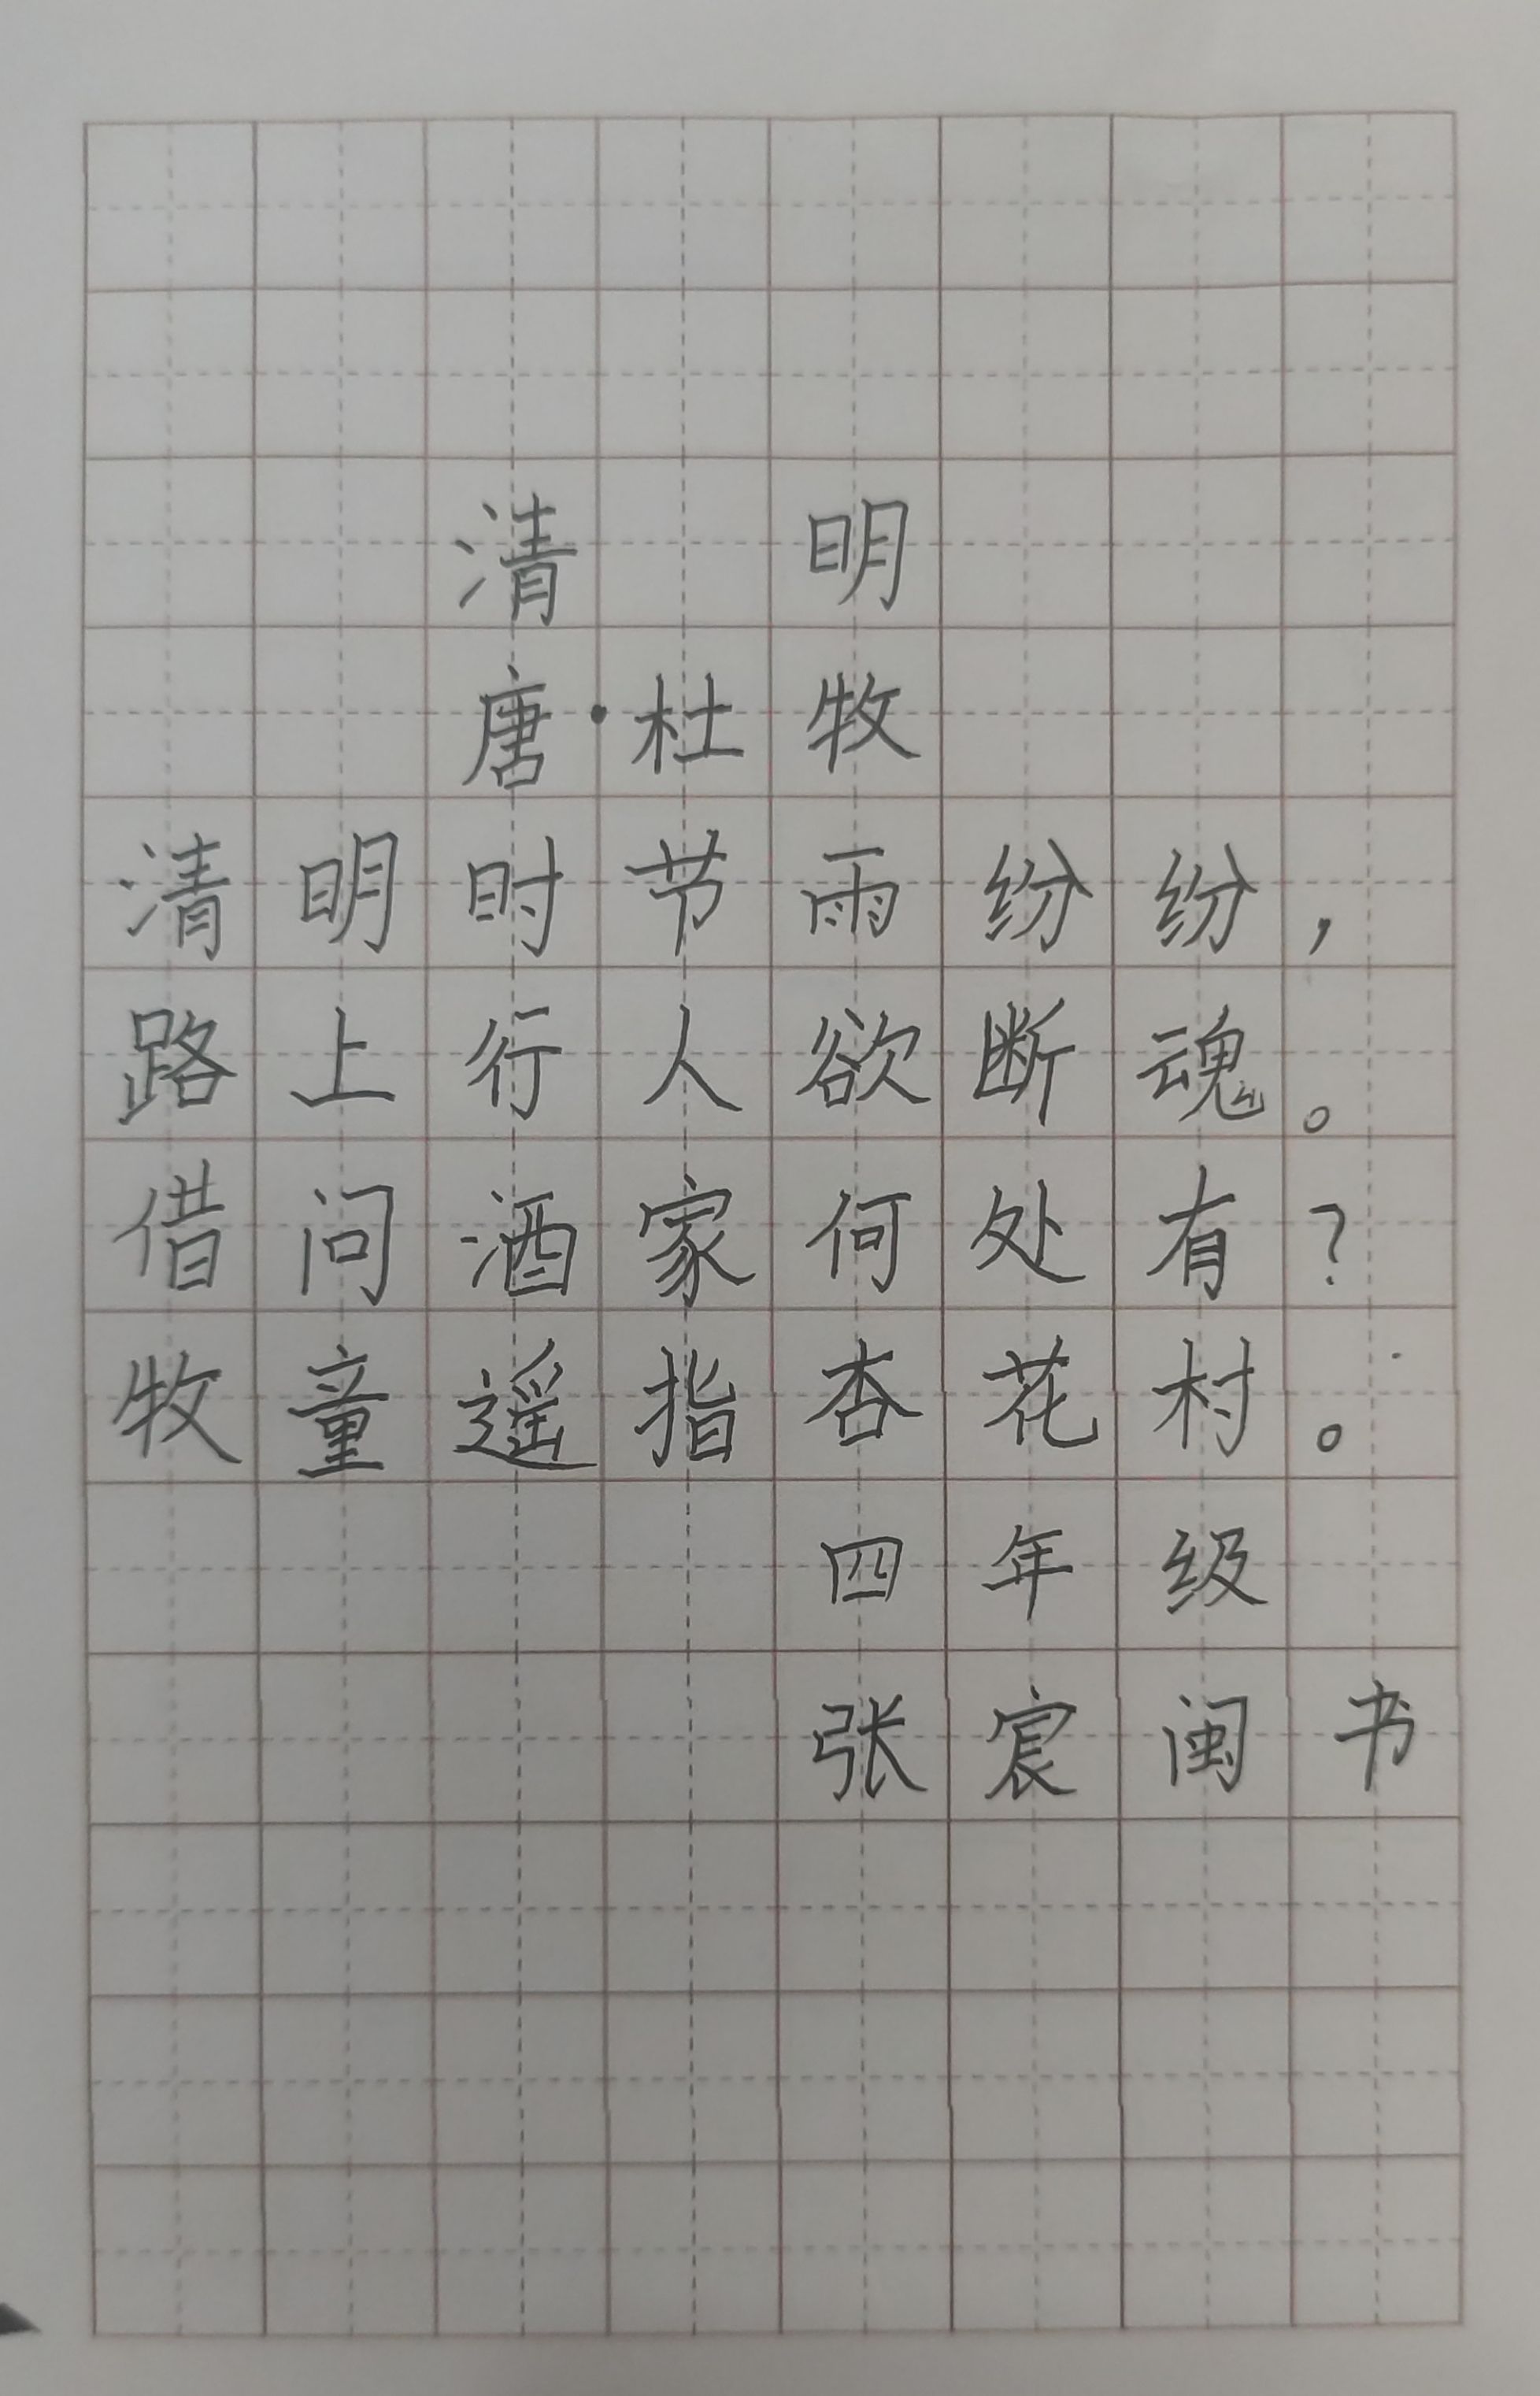 清明
唐·杜牧
清明时节雨纷纷，
路上行人欲断魂。
借问酒家何处有？
牧童遥指杏花村。
四年级
张宸闽书